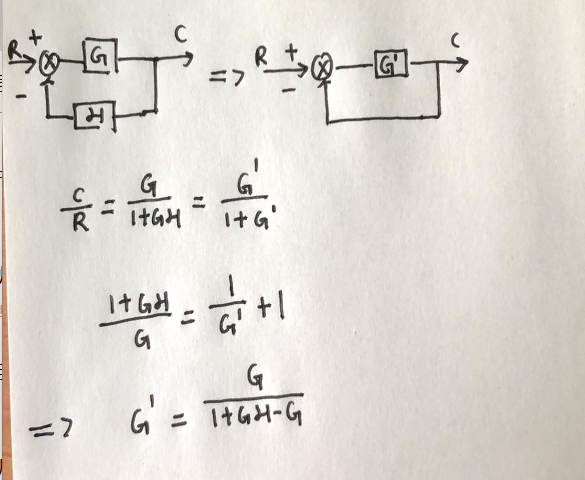 R + - G H C => R + - G' C
C/R = G/(1+GH) = G'/(1+G')
(1+GH)/G = 1/G' + 1
=> G' = G/(1+GH-G)